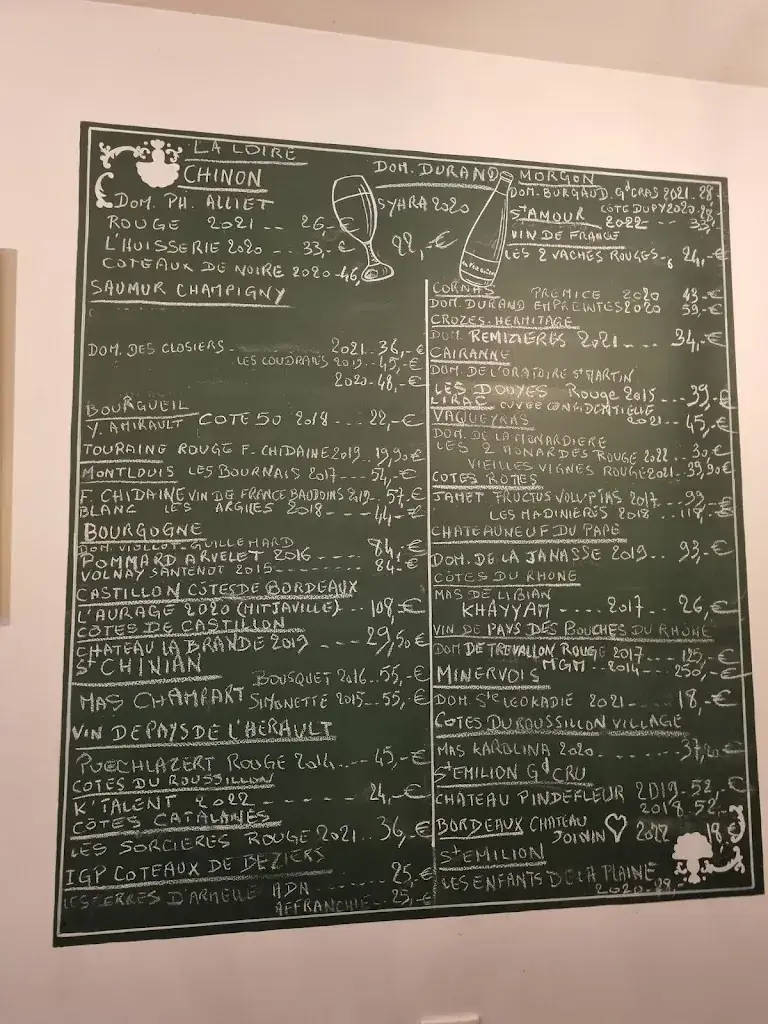 LA LOIRE
CHINON
DOM. PH. ALLIET
ROUGE 2021 .. 26,-€
L'HUISSERIE 2020 .. 33,-€
COTEAUX DE NOIRE 2020 -46,€
SAUMUR CHAMPIGNY
DOM. DES CLOSIERS 2021.. 36,-€
LES COUDRAIS 2019.. 45,-€
2020-48,-€
BOURGUEIL
Y. AMIRAULT COTE 50 2018 .. 22,-€
TOURAINE ROUGE F. CHIDAINE 2019. 19,90€
MONTLOUIS LES BOURNAIS 2017... 54,-€
F. CHIDAINE VIN DE FRANCE BAUDOINS 2019.. 57,€
BLANC LES ARGILES 2018.. 44,-€
BOURGOGNE
DOM. VIOLLOT-GUILLEMARD
POMMARD ARVELET 2016 ..... 84,-€
VOLNAY SANTENOT 2015 ..... 84-€
CASTILLON CÔTES DE BORDEAUX
L'AURAGE 2020 (MITJAVILLE)... 108,-€
CÔTES DE CASTILLON
CHATEAU LA BRANDE 2019 ... 29,50€
St CHINIAN
BOUSQUET 2016.. 55,-€
MAS CHAMPART SIMONETTE 2015... 55,-€
VIN DE PAYS DE L'HERAULT
PUECHLAZERT ROUGE 2014.... 45,-€
COTES DU ROUSSILLON
K'TALENT 2022 ------ 24,-€
CÔTES CATALANES
LES SORCIERES ROUGE 2021.. 36,€
IGP COTEAUX DE BEZIERS
LES TERRES D'ARMELLE ADN ....... 25,€
AFFRANCHIE .... 25,-€
DOM. DURAND
SYHRA 2020
22,-€
MORGON
DOM. BURGAUD. Gd CRAS 2021-28
COTE DU PY 2020-28,-
St AMOUR 2022 .. 33,-
VIN DE FRANCE
LES 2 VACHES ROUGES-, 24,-€
CORNAS PREMICE 2020 43-€
DOM. DURAND EMPREINTES 2020 59-€
CROZES. HERMITAGE
DOM. REMIZIERES 2021... 34,-€
CAIRANNE
DOM. DE L'ORATOIRE St MARTIN
LES DOUYES Rouge 2015... 39,-€
LIRAC CUVEE CONFIDENTIELLE
2021.. 45,-€
VAQUEYRAS
DOM. DE LA MONARDIERE
LES 2 MONARDES ROUGE 2022.. 30,€
VIEILLES VIGNES ROUGE 2021. 39,90€
COTES ROTIES
JAMET FRUCTUS VOLUPTAS 2017 ... 99,-€
LES MADINIERES 2018 .. 118,-€
CHATEAUNEUF DU PAPE
DOM. DE LA JANASSE 2019.. 93,-€
CÔTES DU RHONE
MAS DE LIBIAN
KHAYYAM .... 2017... 26,€
VIN DE PAYS DES BOUCHES DU RHÔNE
DOM DE TREVALLON ROUGE 2017---- 125,-€
MGM .. 2014--- 250,-€
MINERVOIS
DOM. Ste LEOKADIE 2021 ..... 18,-€
COTES DU ROUSSILLON VILLAGE
MAS KAROLINA 2020. ........ 37,20€
St EMILION Gd CRU
CHÂTEAU PINDEFLEUR 2019-52,-€
2018.52.-
BORDEAUX CHATEAU
JOININ 2022 18€
St EMILION
LES ENFANTS DE LA PLAINE
2020-29,-